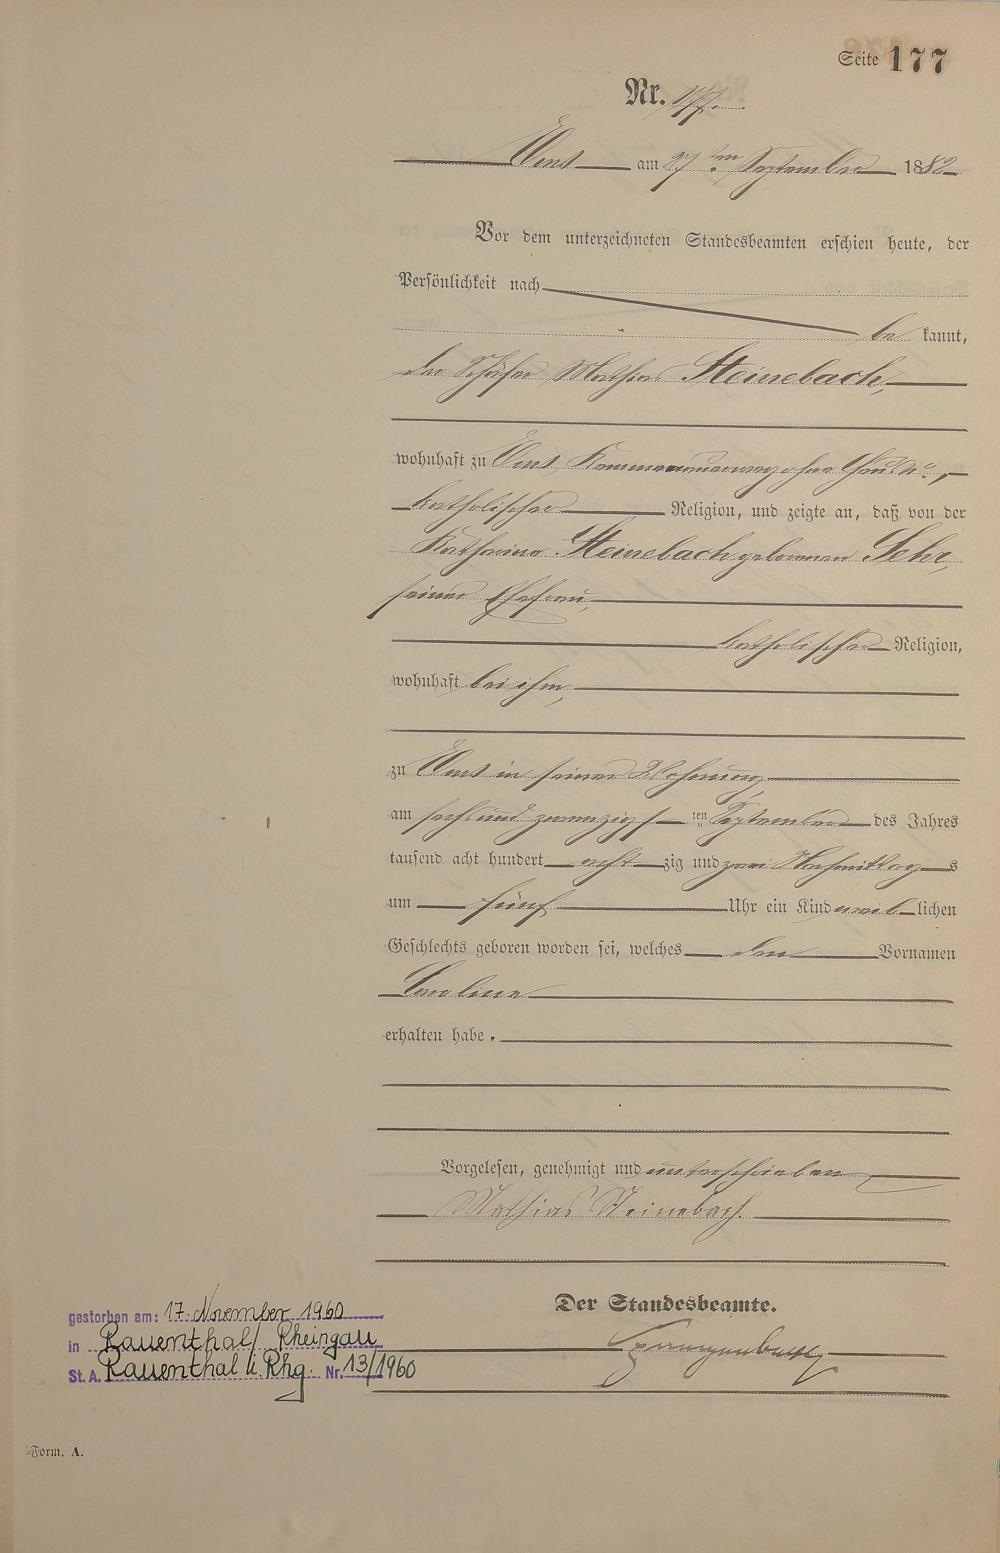 Seite 177
Nr. 177.
Ems am 27ten September 1882
Vor dem unterzeichneten Standesbeamten erschien heute, der
Persönlichkeit nach
be kannt,
der Schäfer Mathias Steinebach,
wohnhaft zu Ems, ohne
katholischer Religion, und zeigte an, daß von der
Katharina Steinebach geborenen Sehr,
seiner Ehefrau,
katholischer Religion,
wohnhaft bei ihm,
zu Ems in seiner Wohnung,
am sechsundzwanzigs ten September des Jahres
tausend acht hundert acht zig und zwei Nachmittag s
um fünf Uhr ein Kind weib lichen
Geschlechts geboren worden sei, welches den Vornamen
Caroline
erhalten habe.
Vorgelesen, genehmigt und unterschrieben
Mathias Steinebach.
Der Standesbeamte.
gestorben am: 17. November 1960
in Rauenthal/Rheingau
St. A. Rauenthal u. Rhg. Nr. 13/1960
Form. A.